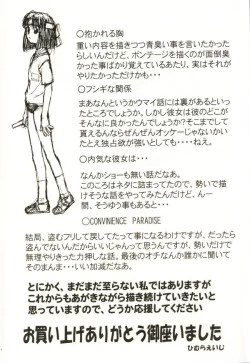 ○抱かれる胸
重い内容を描きつつ青臭い事を言いたかったらしいんだけど、ボンテージを描くのが面倒臭かった事ばかり覚えているあたり、実はそれがやりたかっただけかも・・・
○フシギな関係
まあなんというかウマイ話には裏があるといったところでしょうか。しかし彼女は彼のどこがそんなに良かったんでしょうね?そこまでして貰えるんならぜんぜんオッケーじゃないかたとえ独占欲が強いとしても・・・ねえ。
○内気な彼女は・・・
なんかショーも無い話だなあ。
このころはネタに詰まってたので、勢いで描けそうな話をやってみたんだろうけど、んー問、そうゆう事もあるって・・・
○CONVINIENCE PARADISE
結局、盗むフリして戻たって事になるわけですが、だったら盗んでないんだからいいじゃんって思うんですが、勢いだけで無理やりきった力押しな話。最後のオチなんか誰かに聞いてそのまんま・・・いい加減だなあ。
とにかく、まだまだ至らない私ではありますが
これからもあがきながら描き続けていきたいと
思っていますので、どうか応援してください
お買い上げありがとう御座いました
ひむらえいじ